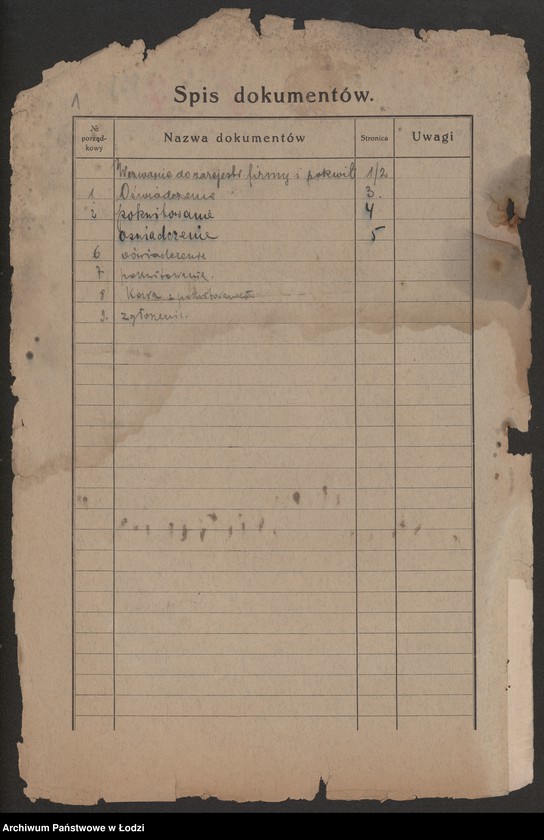 1
Spis dokumentów.
№ porząd-kowy Nazwa dokumentów Stronica Uwagi
Wezwanie do zarejestr firmy i pokwit 1/2
1 Oświadczenie 3.
2 pokwitowanie 4
oświadczenie 5
6 oświadczenie
7 pokwitowanie.
8 z pokwitowaniem
9. zgłoszenie.
Archiwum Państwowe w Łodzi